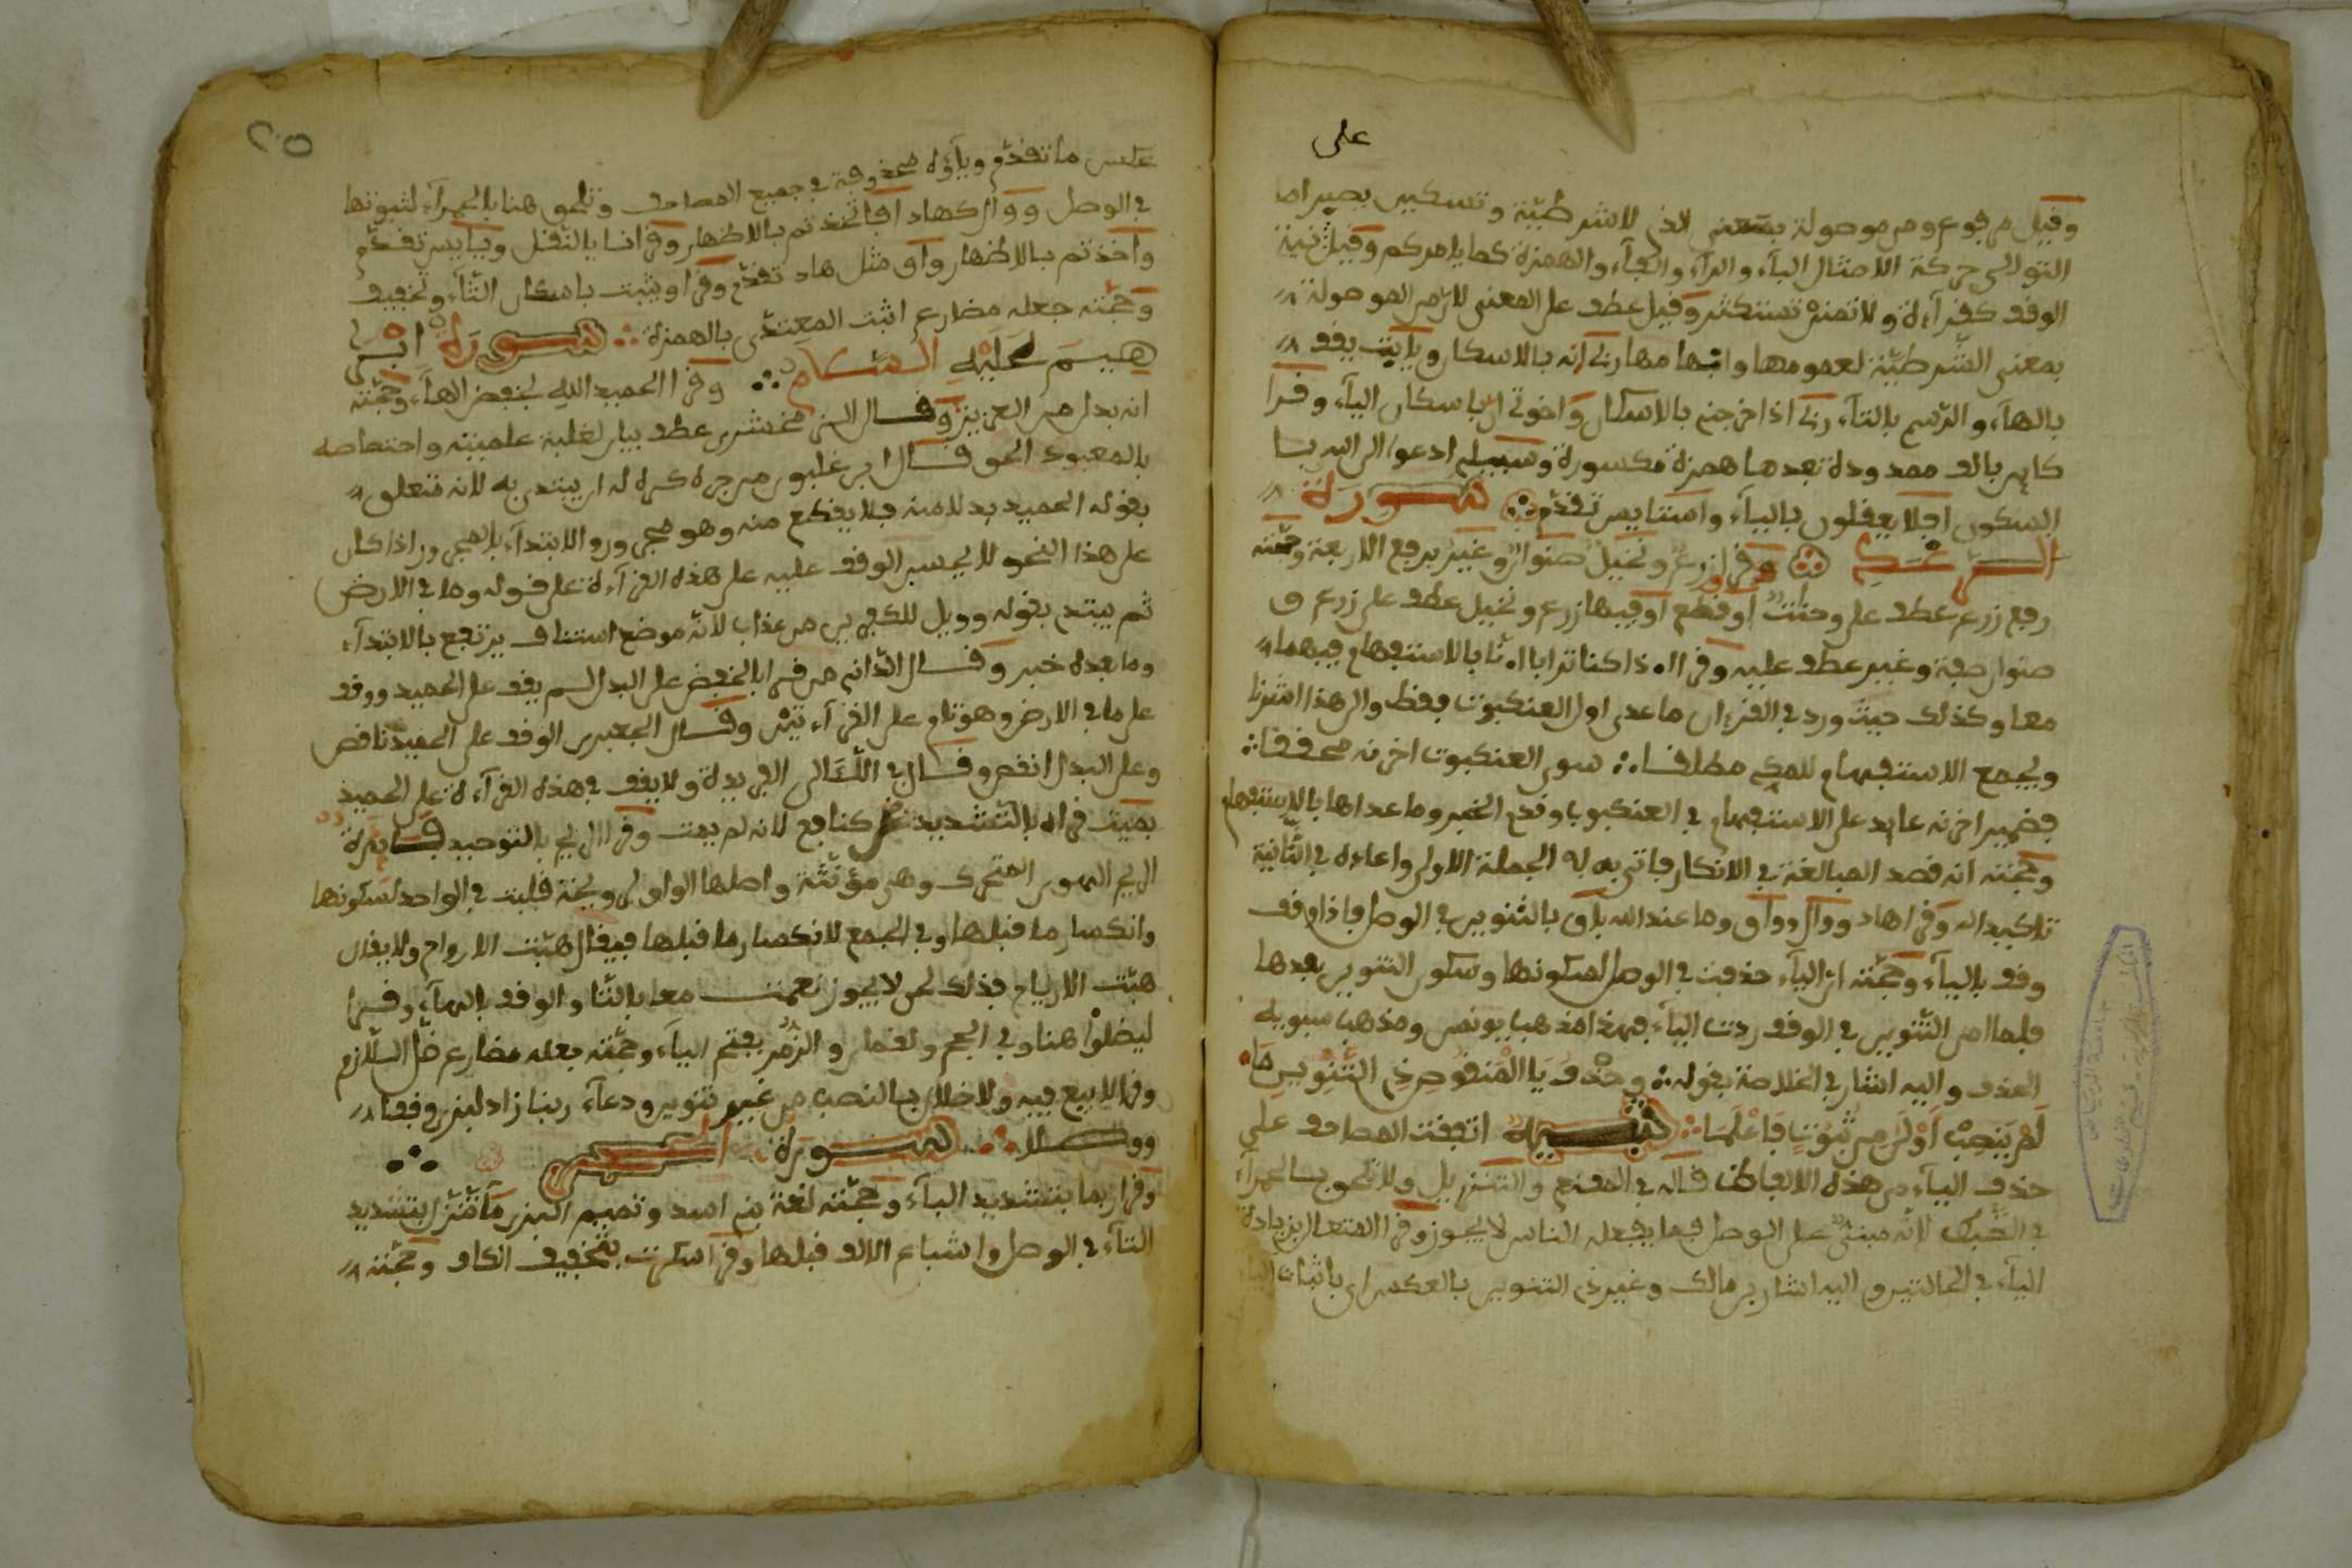 على
وقيل مرفوع ومن موصولة بمعنى الذي لا شرطية وتسكين يصبر اما
التوالي حركة الامثال الباء والراء والفاء والهمزة كما يامركم وقيل نية
الوقف كقراءة ولا تمنن تستكثر وقيل عطف على المعنى لان من الموصولة
بمعنى الشرطية لعمومها وابهامها ربي انه بالاسكان ويابت يقف
بالهاء والرسم بالتاء ربي اذا خرجني بالاسكان واخوتي ان باسكان الياء وقرا
كاين بالف ممدودة بعدها همزة مكسورة وسبيلي ادعوا الى الله بيا
السكون افلا يعقلون بالياء واستايس تقدم سورة
الرعد وقرا زرع ونخيل صنوان وغير برفع الاربعة وحجته
رفع زرع عطف على وجنت او قطع او فيها زرع ونخيل عطف على زرع و
صنوان صفة وغير عطف عليه وقرا اذا كنا ترابا انا بالاستفهام فيهما
معا وكذلك حيث ورد في القرءان ما عدى اول العنكبوت فقط والى هذا اشرنا
ويجمع الاستفهام للمكي مطلقا سوى العنكبوت اخرنه محققا
فضمير اخرنه عايد على الاستفهام في العنكبوت وقدم الخبر وما عداها بالاستفهام
وحجته انه قصد المبالغة في الانكار فاتى به في الجملة الاولى واعاده في الثانية
تاكيدا له وقرا هاد ووال وواق وما عند الله باق بالتنوين في الوصل فاذا وقف
وقف بالياء وحجته ان الياء حذفت في الوصل لسكونها وسكون التنوين بعدها
فلما امن التنوين في الوقف ردت الياء فهذا مذهب يونس ومذهب سيبويه
الحذف واليه اشار في الخلاصة بقوله وحذف يا المنقوص ذي التنوين ما
لم ينصب اولى من ثبوت فاعلما تنبيه اتفقت المصاحف على
حذف الياء من هذه الالفاظ قاله في المقنع والتنزيل ولا تلحق بالحمراء
في الضبط لانه مبني على الوصل فما يفعله الناس لا يجوز وقرا المتعال بزيادة
الياء في الحالتين واليه اشار بن مالك وغير ذي التنوين بالعكس اي باثبات الياء
٢٠٥
عكس ما تقدم وياؤه محذوفة في جميع المصاحف وتلحق هنا بالحمراء لثبوتها
في الوصل ووال كهاد افاتخذتم بالاظهار وقرا نسا بالنقل وييايس تقدم
واخذتم بالاظهار واق مثل هاد تقدم وقرا ويثبت باسكان الثاء وتخفيف
وحجته جعله مضارع اثبت المعتدي بالهمزة سورة ابرا
هيم عليه السلام وقرا الحميد الله بخفض الهاء وحجته
انه بدل من العزيز وقال الزمخشري عطف بيان لغلبة علميته واختصاصه
بالمعبود الحق قال ابن غلبون من جره كره له ان يبتدي به لانه متعلق
بقوله الحميد بدلا منه فلا يقطع منه وهو مجرور والابتداء بالمجرور اذا كان
على هذا النحو لا يحسن الوقف عليه على هذه القراءة على قوله وما في الارض
ثم يبتدي بقوله وويل للكفرين من عذاب لانه موضع استئناف يرتفع بالابتداء
وما بعده خبر وقال الداني من قرا بالخفض على البدل لم يقف على الحميد ووقف
على ما في الارض وهو تام على القراءتين وقال الجعبري الوقف على الحميد ناقص
وعلى البدل انقص وقال في اللئالي الفريدة ولا يقف في هذه القراءة على الحميد
بميت قراه بالتشديد كنافع لانه لم يمت وقرا الريح بالتوحيد فائدة
الريح الهوى المتحرك وهي مؤنثة واصلها الواو لرويحة قلبت في الواحد لسكونها
وانكسار ما قبلها وفي الجمع لانكسار ما قبلها فيقال هبت الارواح ولا يقال
هبت الارياح فذلك لحن لا يجوز نعمت معا بالتا والوقف بالهاء وقرا
ليضلوا هنا وفي الحج ولقمان والزمر بفتح الياء وحجته جعله مضارع ضل اللازم
وقرا لا بيع فيه ولا خلال بالنصب من غير تنوين ودعاء ربنا زاد البزي وقفا
ووصلا سورة الحجر
وقرا ربما بتشديد الباء وحجته لغة بني اسد وتميم البزي ما تنزل بتشديد
التاء في الوصل واشباع الالف قبلها وقرا سكرت بتخفيف الكاف وحجته